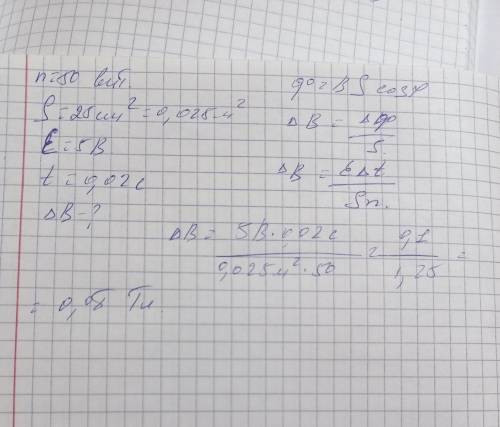 n=50 вит.
S=25см²=0,025м²
Ɛ=5В
t=0,02с
ΔB-?
φ=BS cosφ
ΔB = Δφ/S.
ΔB = ƐΔt/Sn.
ΔB = 5В·0,02с/0,025м²·50 = 0,1/1,25 =
= Тл.